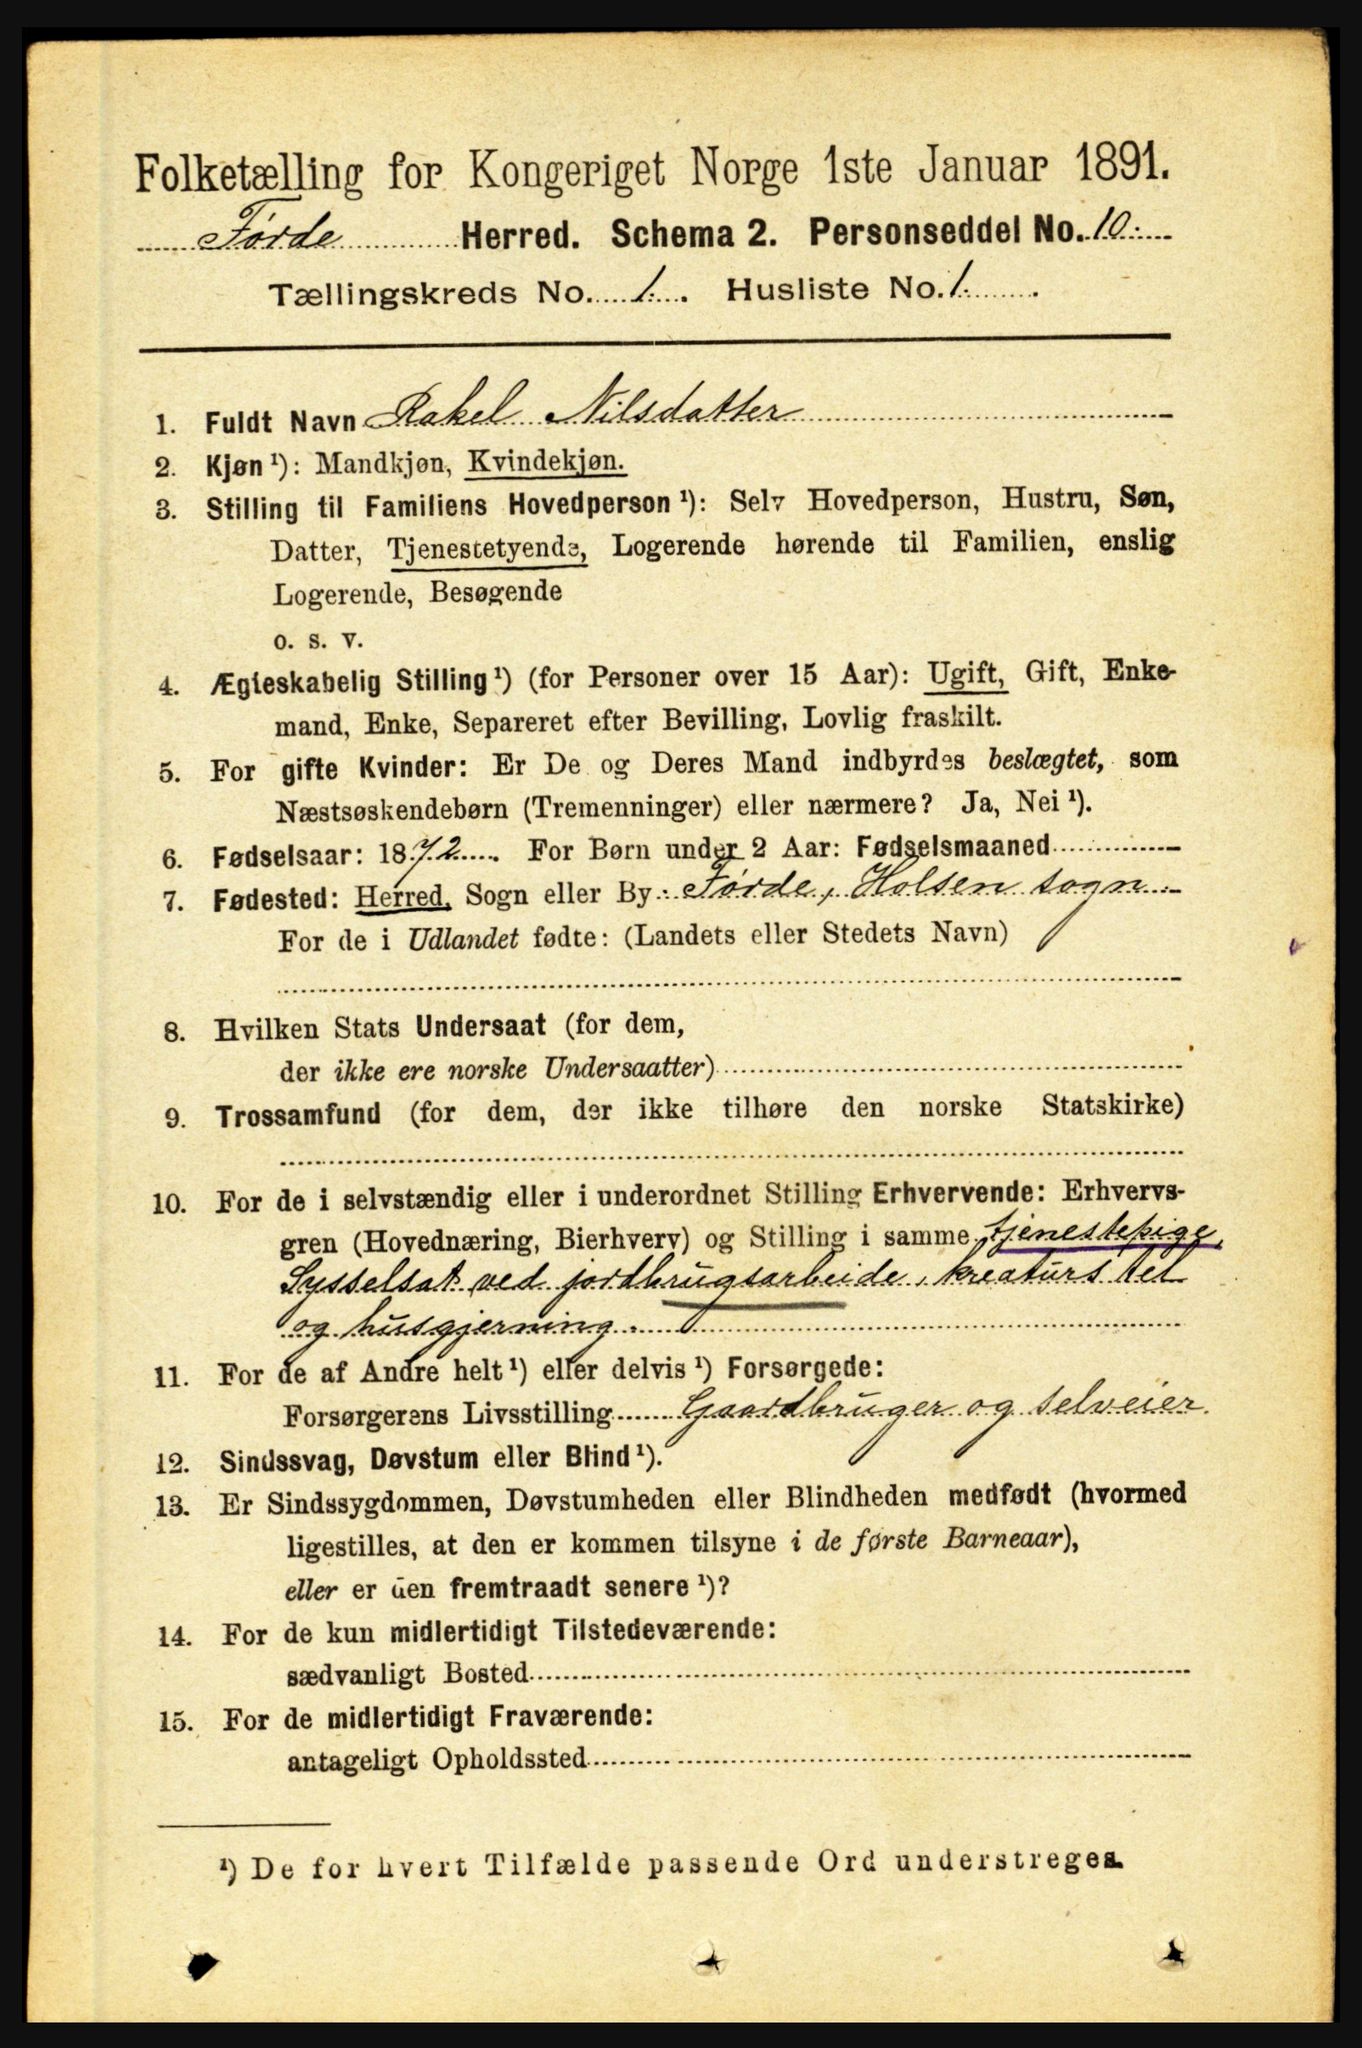 Folketælling for Kongeriget Norge 1ste Januar 1891.
Førde Herred. Schema 2. Personseddel No. 10.
Tællingskreds No. 1. Husliste No. 1.
1. Fuldt Navn Rakel Nilsdatter
2. Kjøn ¹): Mandkjøn, Kvindekjøn.
3. Stilling til Familiens Hovedperson ¹): Selv Hovedperson, Hustru, Søn,
Datter, Tjenestetyende, Logerende hørende til Familien, enslig
Logerende, Besøgende
o. s. v.
4. Ægteskabelig Stilling ¹) (for Personer over 15 Aar): Ugift, Gift, Enke-
mand, Enke, Separeret efter Bevilling, Lovlig fraskilt.
5. For gifte Kvinder: Er De og Deres Mand indbyrdes beslægtet, som
Næstsøskendebørn (Tremenninger) eller nærmere? Ja, Nei ¹).
6. Fødselsaar: 1872. For Børn under 2 Aar: Fødselsmaaned
7. Fødested: Herred, Sogn eller By Førde, Holsen sogn.
For de i Udlandet fødte: (Landets eller Stedets Navn)
8. Hvilken Stats Undersaat (for dem,
der ikke ere norske Undersaatter)
9. Trossamfund (for dem, der ikke tilhøre den norske Statskirke)
10. For de i selvstændig eller i underordnet Stilling Erhvervende: Erhvervs-
gren (Hovednæring, Bierhverv) og Stilling i samme tjenestepige,
Sysselsat ved jordbrugsarbeide, kreaturstel
og husgjerning.
11. For de af Andre helt ¹) eller delvis ¹) Forsørgede:
Forsørgerens Livsstilling Gaardbruger og selveier.
12. Sindssvag, Døvstum eller Blind ¹).
13. Er Sindssygdommen, Døvstumheden eller Blindheden medfødt (hvormed
ligestilles, at den er kommen tilsyne i de første Barneaar),
eller er den fremtraadt senere ¹)?
14. For de kun midlertidigt Tilstedeværende:
sædvanligt Bosted
15. For de midlertidigt Fraværende:
antageligt Opholdssted
¹) De for hvert Tilfælde passende Ord understreges.